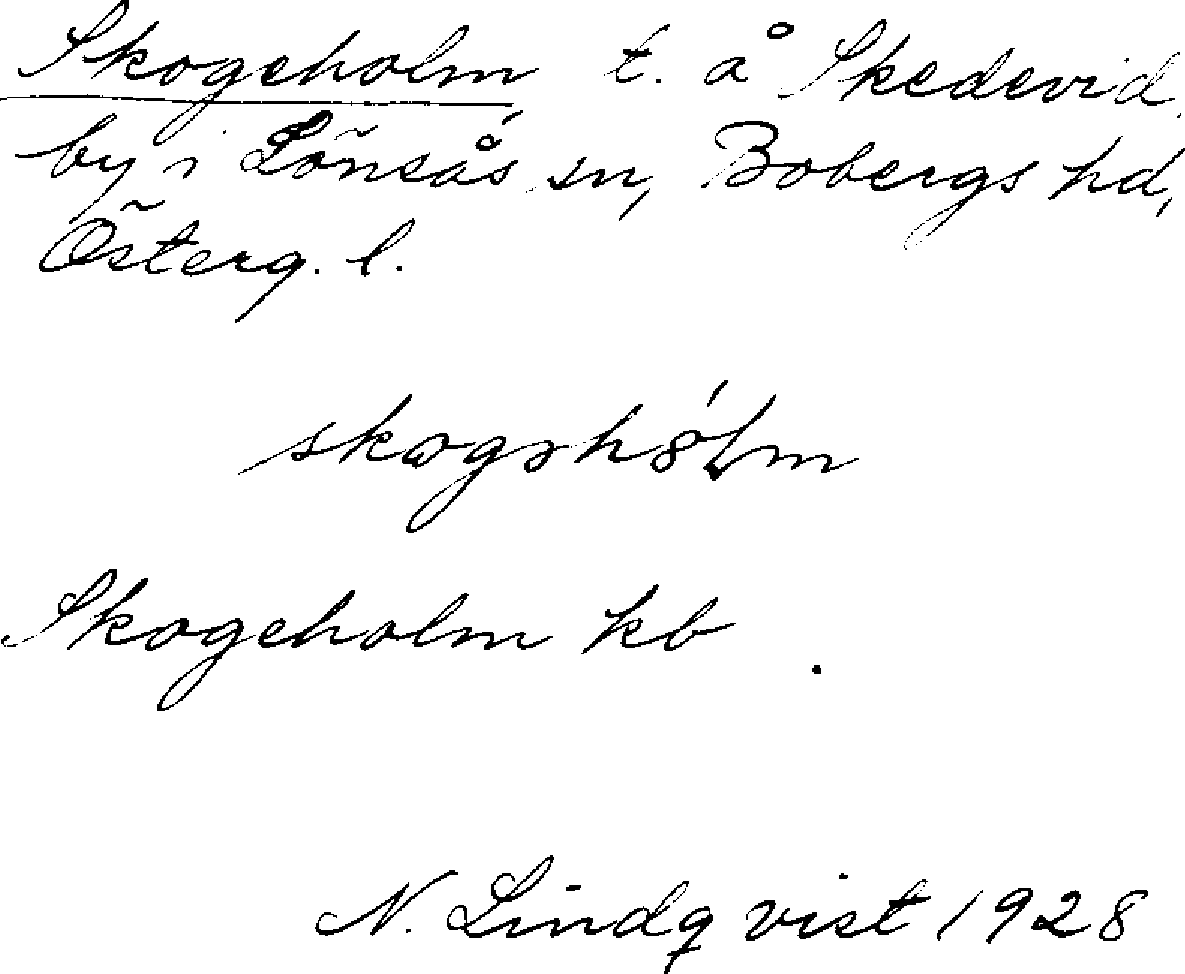 Skogeholm, t. å Skedevid,
by i Lönsås sn, Bobergs hd,
Österg. l.
skogəhólm
Skogeholm kb.
N. Lindqvist 1928